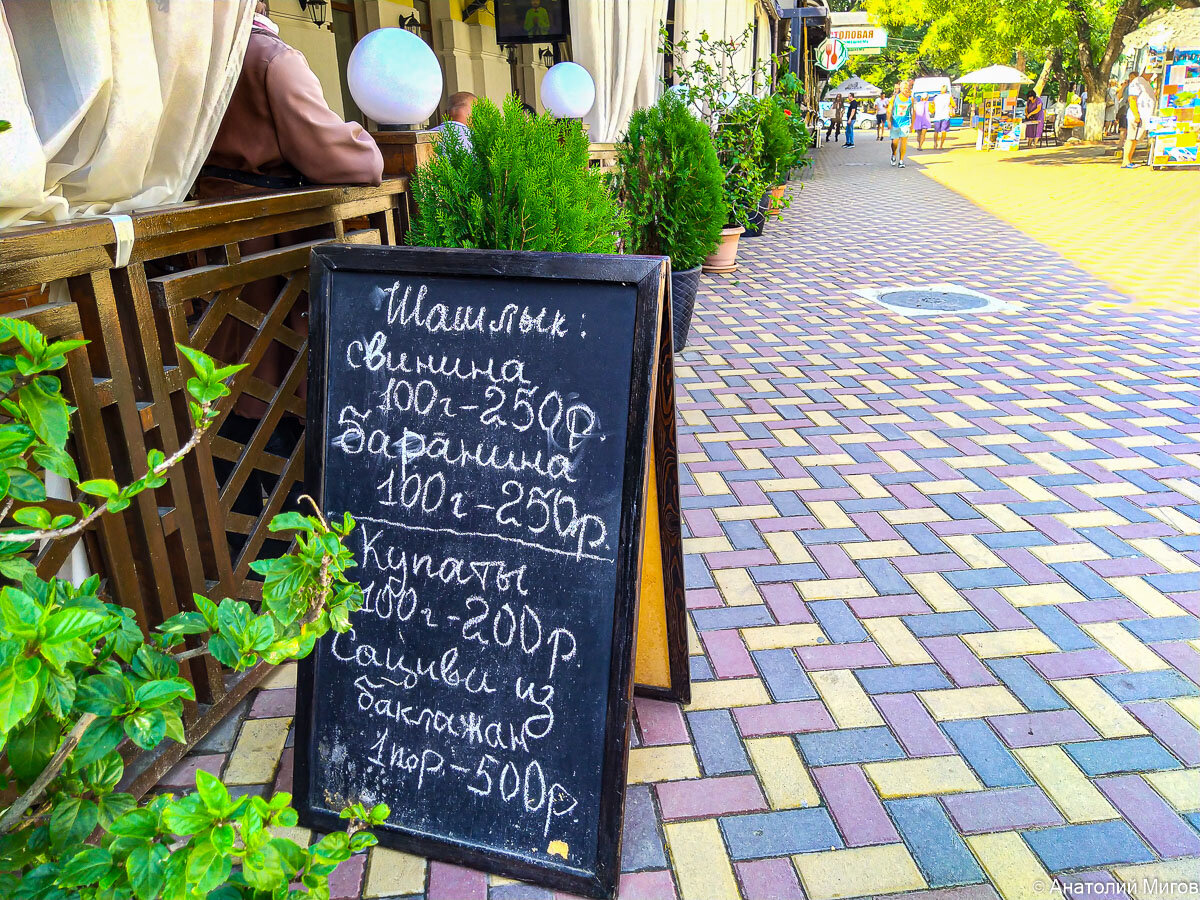 СТОЛОВАЯ
Шашлык:
свинина
100г-250р.
Баранина
100г-250р.
Купаты
100г-200р
Сациви из
баклажан
1 пор.-500р.
© Анатолий Мигов